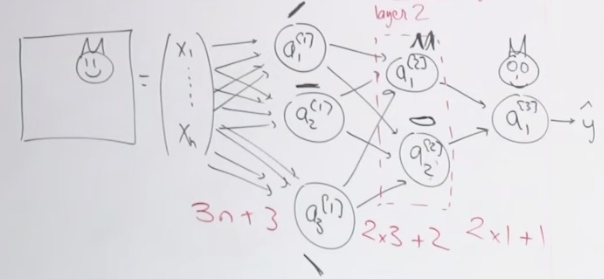 layer 2
x₁
=
xₙ
a₁^[1]
a₂^[1]
a₃^[1]
a₁^[2]
a₂^[2]
a₁^[3]
ŷ
3n + 3
2x3 + 2
2x1 + 1